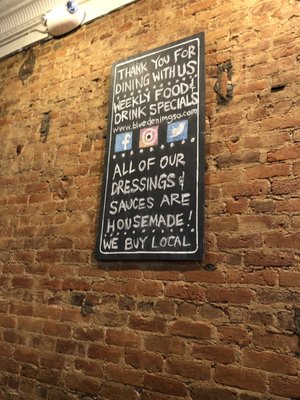 THANK YOU FOR
DINING WITH US
WEEKLY FOOD &
DRINK SPECIALS
www.bluedenimgso.com
ALL OF OUR
DRESSINGS &
SAUCES ARE
HOUSEMADE!
WE BUY LOCAL